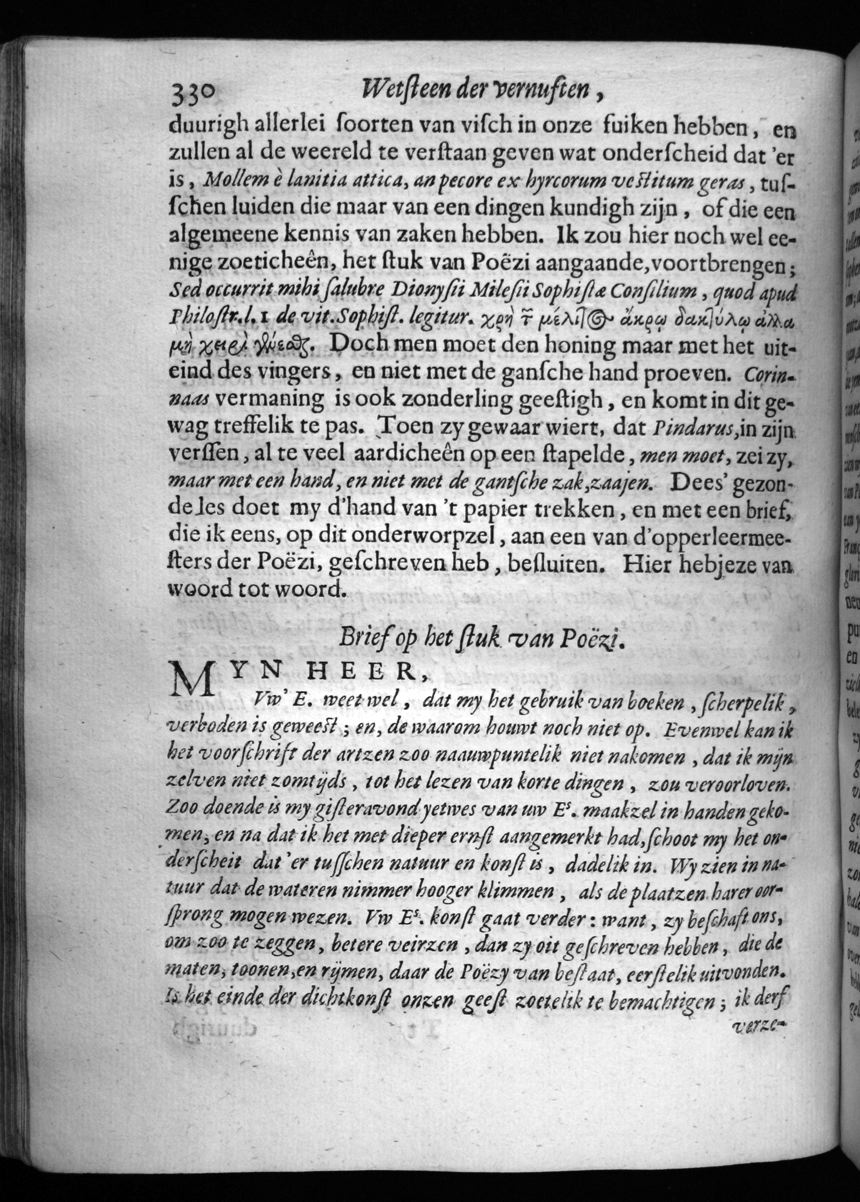 330 Wetſteen der vernuften,
duurigh allerlei ſoorten van viſch in onze fuiken hebben, en
zullen al de weereld te verſtaan geven wat onderſcheid dat 'er
is, Mollem è lanitia attica, an pecore ex hyrcorum veſtitum geras, tuſ-
ſchen luiden die maar van een dingen kundigh zijn, of die een
algemeene kennis van zaken hebben. Ik zou hier noch wel ee-
nige zoeticheên, het ſtuk van Poëzi aangaande, voortbrengen;
Sed occurrit mihi ſalubre Dionyſii Mileſii Sophiſtæ Conſilium, quod apud
Philoſtr. l. 1 de vit. Sophiſt. legitur. χρὴ τ̃ μέλιτος ἄκρῳ δακτύλῳ ἀλλα
μὴ γεύεσθ. Doch men moet den honing maar met het uit-
eind des vingers, en niet met de ganſche hand proeven. Corin-
naas vermaning is ook zonderling geeſtigh, en komt in dit ge-
wag treffelik te pas. Toen zy gewaar wiert, dat Pindarus, in zijn
verſſen, al te veel aardicheên op een ſtapelde, men moet, zei zy,
maar met een hand, en niet met de gantſche zak, zaajen. Dees' gezon-
de les doet my d'hand van 't papier trekken, en met een brief,
die ik eens, op dit onderworpzel, aan een van d'opperleermee-
ſters der Poëzi, geſchreven heb, beſluiten. Hier hebjeze van
woord tot woord.
Brief op het ſtuk van Poëzi.
MYN HEER,
Vw' E. weet wel, dat my het gebruik van boeken, ſcherpelik,
verboden is geweeſt; en, de waarom houwt noch niet op. Evenwel kan ik
het voorſchrift der artzen zoo naauwpuntelik niet nakomen, dat ik mijn
zelven niet zomtijds, tot het lezen van korte dingen, zou veroorloven.
Zoo doende is my giſteravond yetwes van uw Es. maakzel in handen geko-
men, en na dat ik het met dieper ernſt aangemerkt had, ſchoot my het on-
derſcheit dat'er tuſſchen natuur en konſt is, dadelik in. Wy zien in na-
tuur dat de wateren nimmer hooger klimmen, als de plaatzen harer oor-
ſprong mogen wezen. Vw Es. konſt gaat verder: want, zy beſchaft ons,
om zoo te zeggen, betere veirzen, dan zy oit geſchreven hebben, die de
maten, toonen, en rijmen, daar de Poëzy van beſtaat, eerſtelik uitvonden.
Is het einde der dichtkonſt onzen geeſt zoetelik te bemachtigen; ik derf
verze-